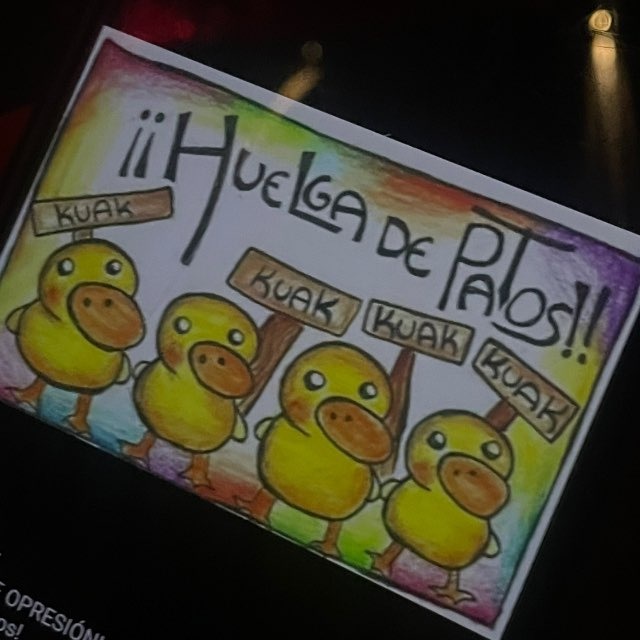 ¡¡HUELGA DE PATOS!!
KUAK
KUAK
KUAK
KUAK
OPRESIÓN!
os!